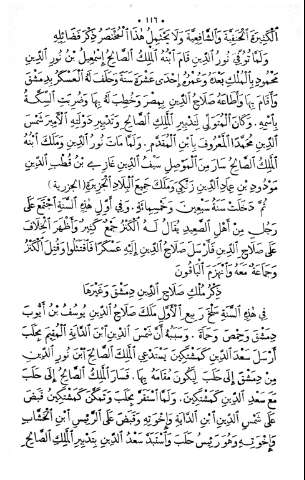 • ١١٦ •
الكثيرة الحنفية والشافعية ولا يحتمل هذا المختصر ذكر فضائله
ولما توفي نور الدين قام ابنه الملك الصالح إسمعيل بن نور الدين
محمود بالملك بعده وعمره إحدى عشرة سنة وحلف له العسكر بدمشق
وأقام بها وأطاعه صلاح الدين بمصر وخطب له بها وضربت السكة
باسمه. وكان المتولي لتدبير الملك الصالح وتدبير دولته الأمير شمس
الدين محمدا المعروف بابن المقدم. ولما مات نور الدين وملك ابنه
الملك الصالح سار من الموصل سيف الدين غازي بن قطب الدين
مودود بن عماد الدين زنكي وملك جميع البلاد الجزيرة (الجزرية)
ثم دخلت سنة سبعين وخمسمائة. وفي أول هذه السنة اجتمع على
رجل من أهل الصعيد يقال له الكنز جمع كثير وأظهر الخلاف
على صلاح الدين فأرسل صلاح الدين إليه عسكرا فاقتتلوا وقتل الكنز
وجماعة معه وانهزم الباقون
ذكر ملك صلاح الدين دمشق وغيرها
في هذه السنة سلخ ربيع الأول ملك صلاح الدين يوسف بن أيوب
دمشق وحمص وحماة. وسببه أن شمس الدين ابن الداية المقيم بحلب
أرسل سعد الدين كمشتكين يستدعي الملك الصالح ابن نور الدين
من دمشق إلى حلب ليكون مقامه بها. فسار الملك الصالح إلى حلب
مع سعد الدين كمشتكين. ولما استقر بحلب وتمكن كمشتكين قبض
على شمس الدين ابن الداية وإخوته وقبض على الرئيس ابن الخشاب
وإخوته وهو رئيس حلب واستبد سعد الدين بتدبير الملك الصالح